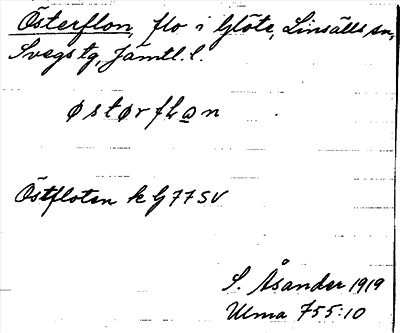 Österflon, flo i Glöte, Linsälls sn,
Svegs tg, Jämtl. l.
østørfLo̲n
Östfloten k G 77 SV
S. Åsander 1919
Ulma 755:10